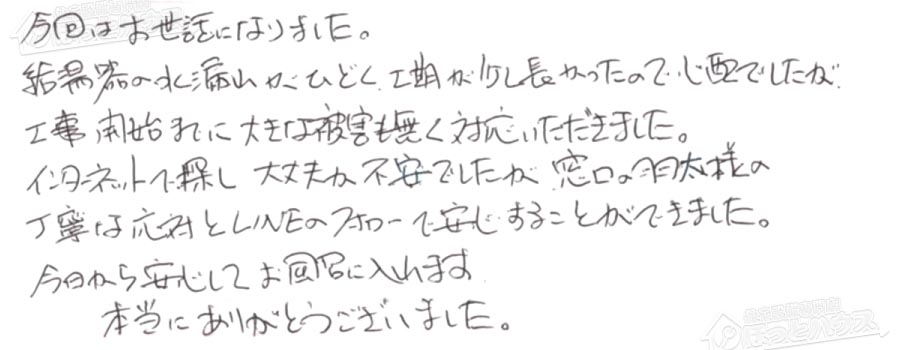 今回はお世話になりました。
給湯器の水漏れがひどく工期が少し長かったので心配でしたが
工事開始までに大きな被害も無く対応いただきました。
インターネットで探し 大丈夫か不安でしたが 窓口の羽太様の
丁寧な応対とLINEのフォローで安心することができました。
今日から安心してお風呂に入れます
本当にありがとうございました。
ほっとハウス